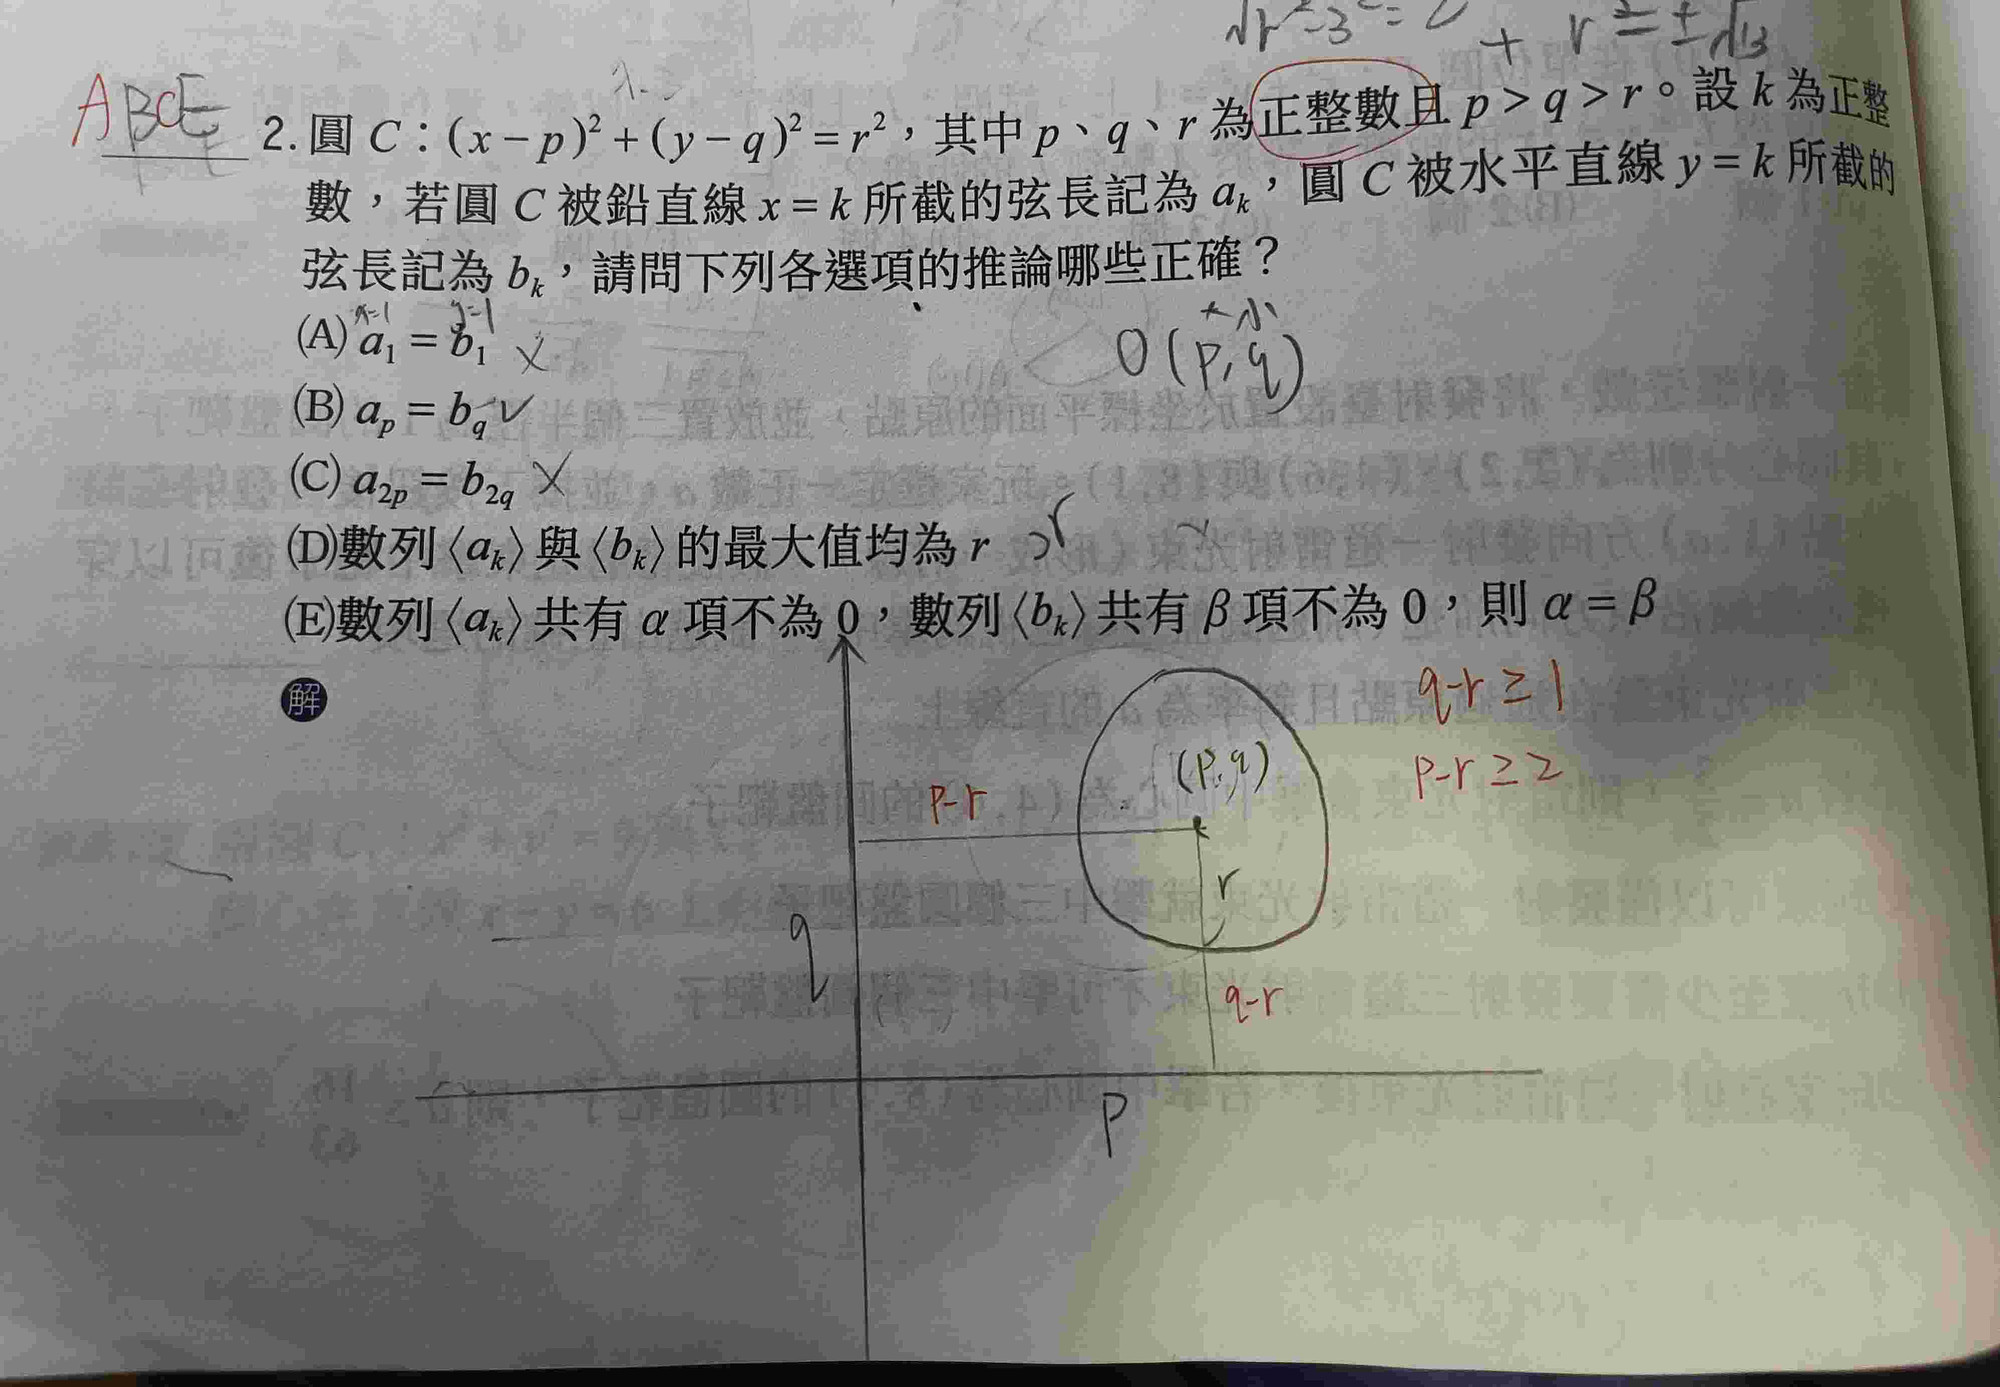 √r²-3²=2 + r²=±√13
ABCE
2. 圓 C：(x－p)²＋(y－q)²＝r²，其中 p、q、r 為正整數且 p＞q＞r。設 k 為正整
數，若圓 C 被鉛直線 x＝k 所截的弦長記為 aₖ，圓 C 被水平直線 y＝k 所截的
弦長記為 bₖ，請問下列各選項的推論哪些正確？
x=1 y=1
(A) a₁＝b₁ ×
O(p,q)
大 小
(B) aₚ＝b_q ✓
(C) a₂ₚ＝b₂q ×
(D)數列〈aₖ〉與〈bₖ〉的最大值均為 r 2r ×
(E)數列〈aₖ〉共有 α 項不為 0，數列〈bₖ〉共有 β 項不為 0，則 α＝β
解
q-r≥1
(p,q)
p-r≥2
p-r
r
q
q-r
p